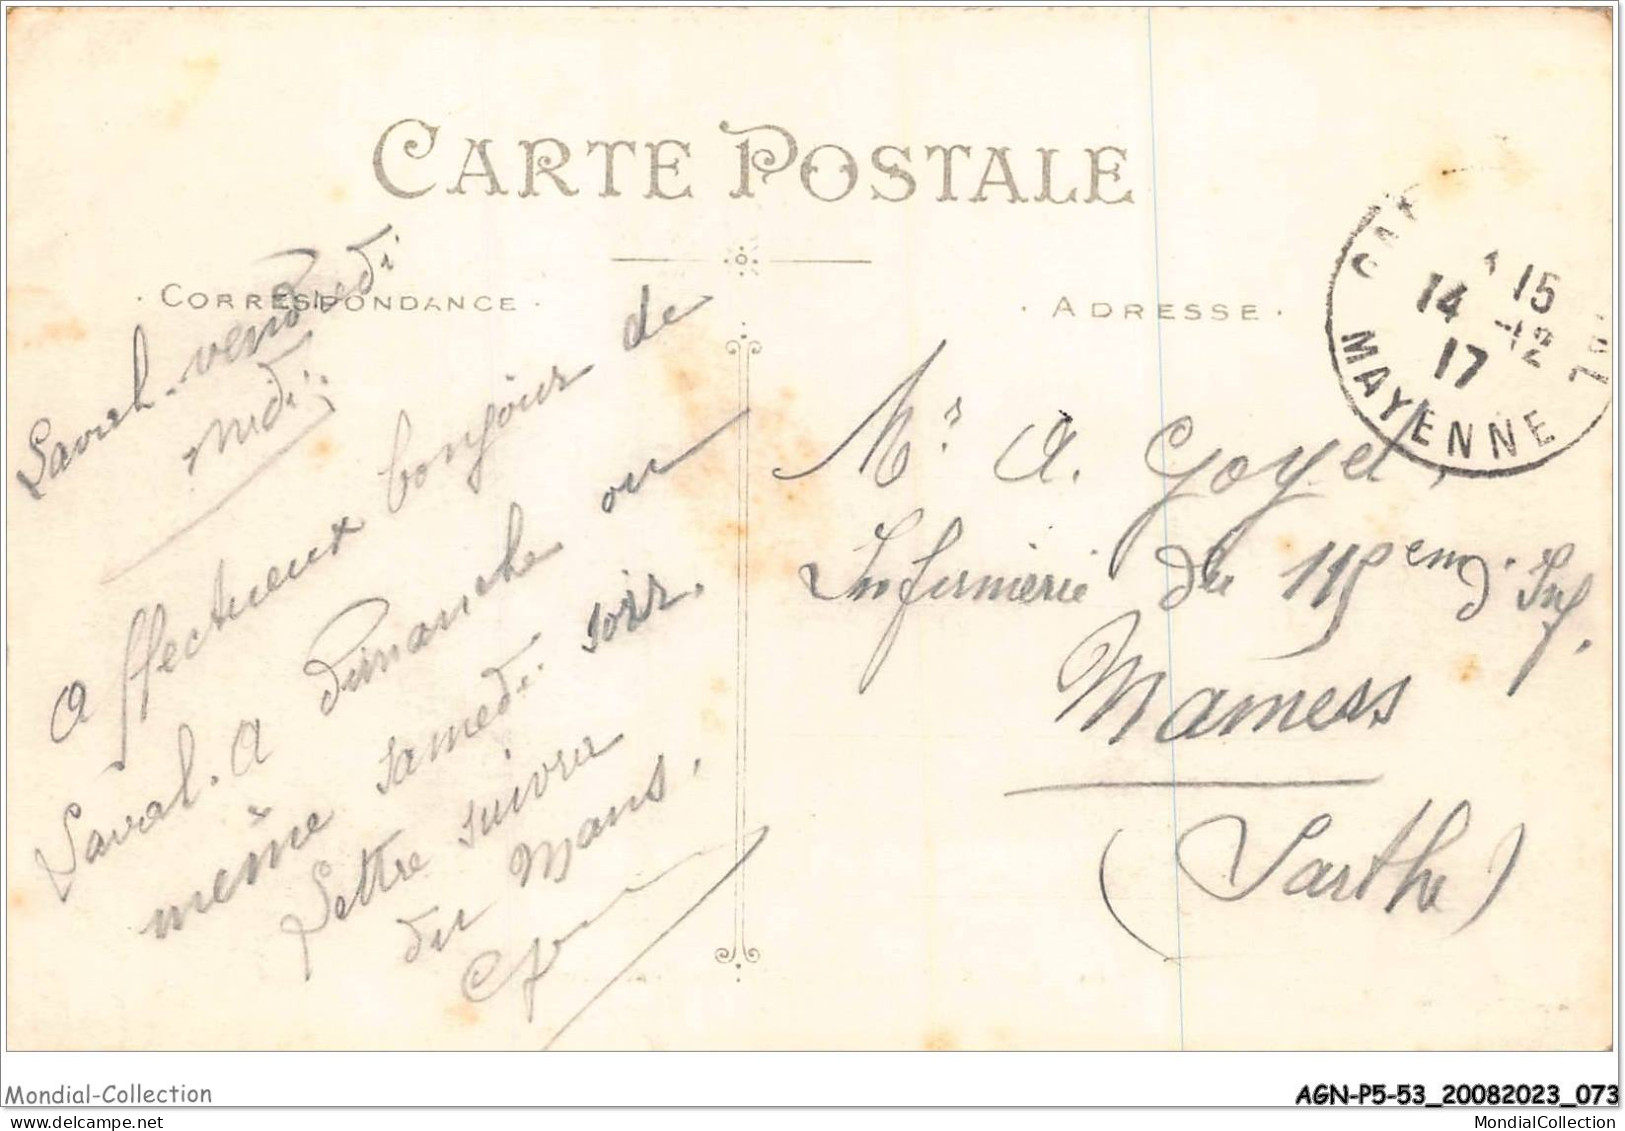 CARTE POSTALE
· CORRESPONDANCE ·
Laval - vendredi
midi.
Affectueux bonjour de
Laval. A dimanche ou
même samedi soir.
Lettre suivra
du Mans.
· ADRESSE ·
15
14 -12
17
MAYENNE
Mr. A. Goyet,
Infirmerie du 115em d'Inf.
Mamers
(Sarthe)
Mondial-Collection
AGN-P5-53_20082023_073
www.delcampe.net
MondialCollection